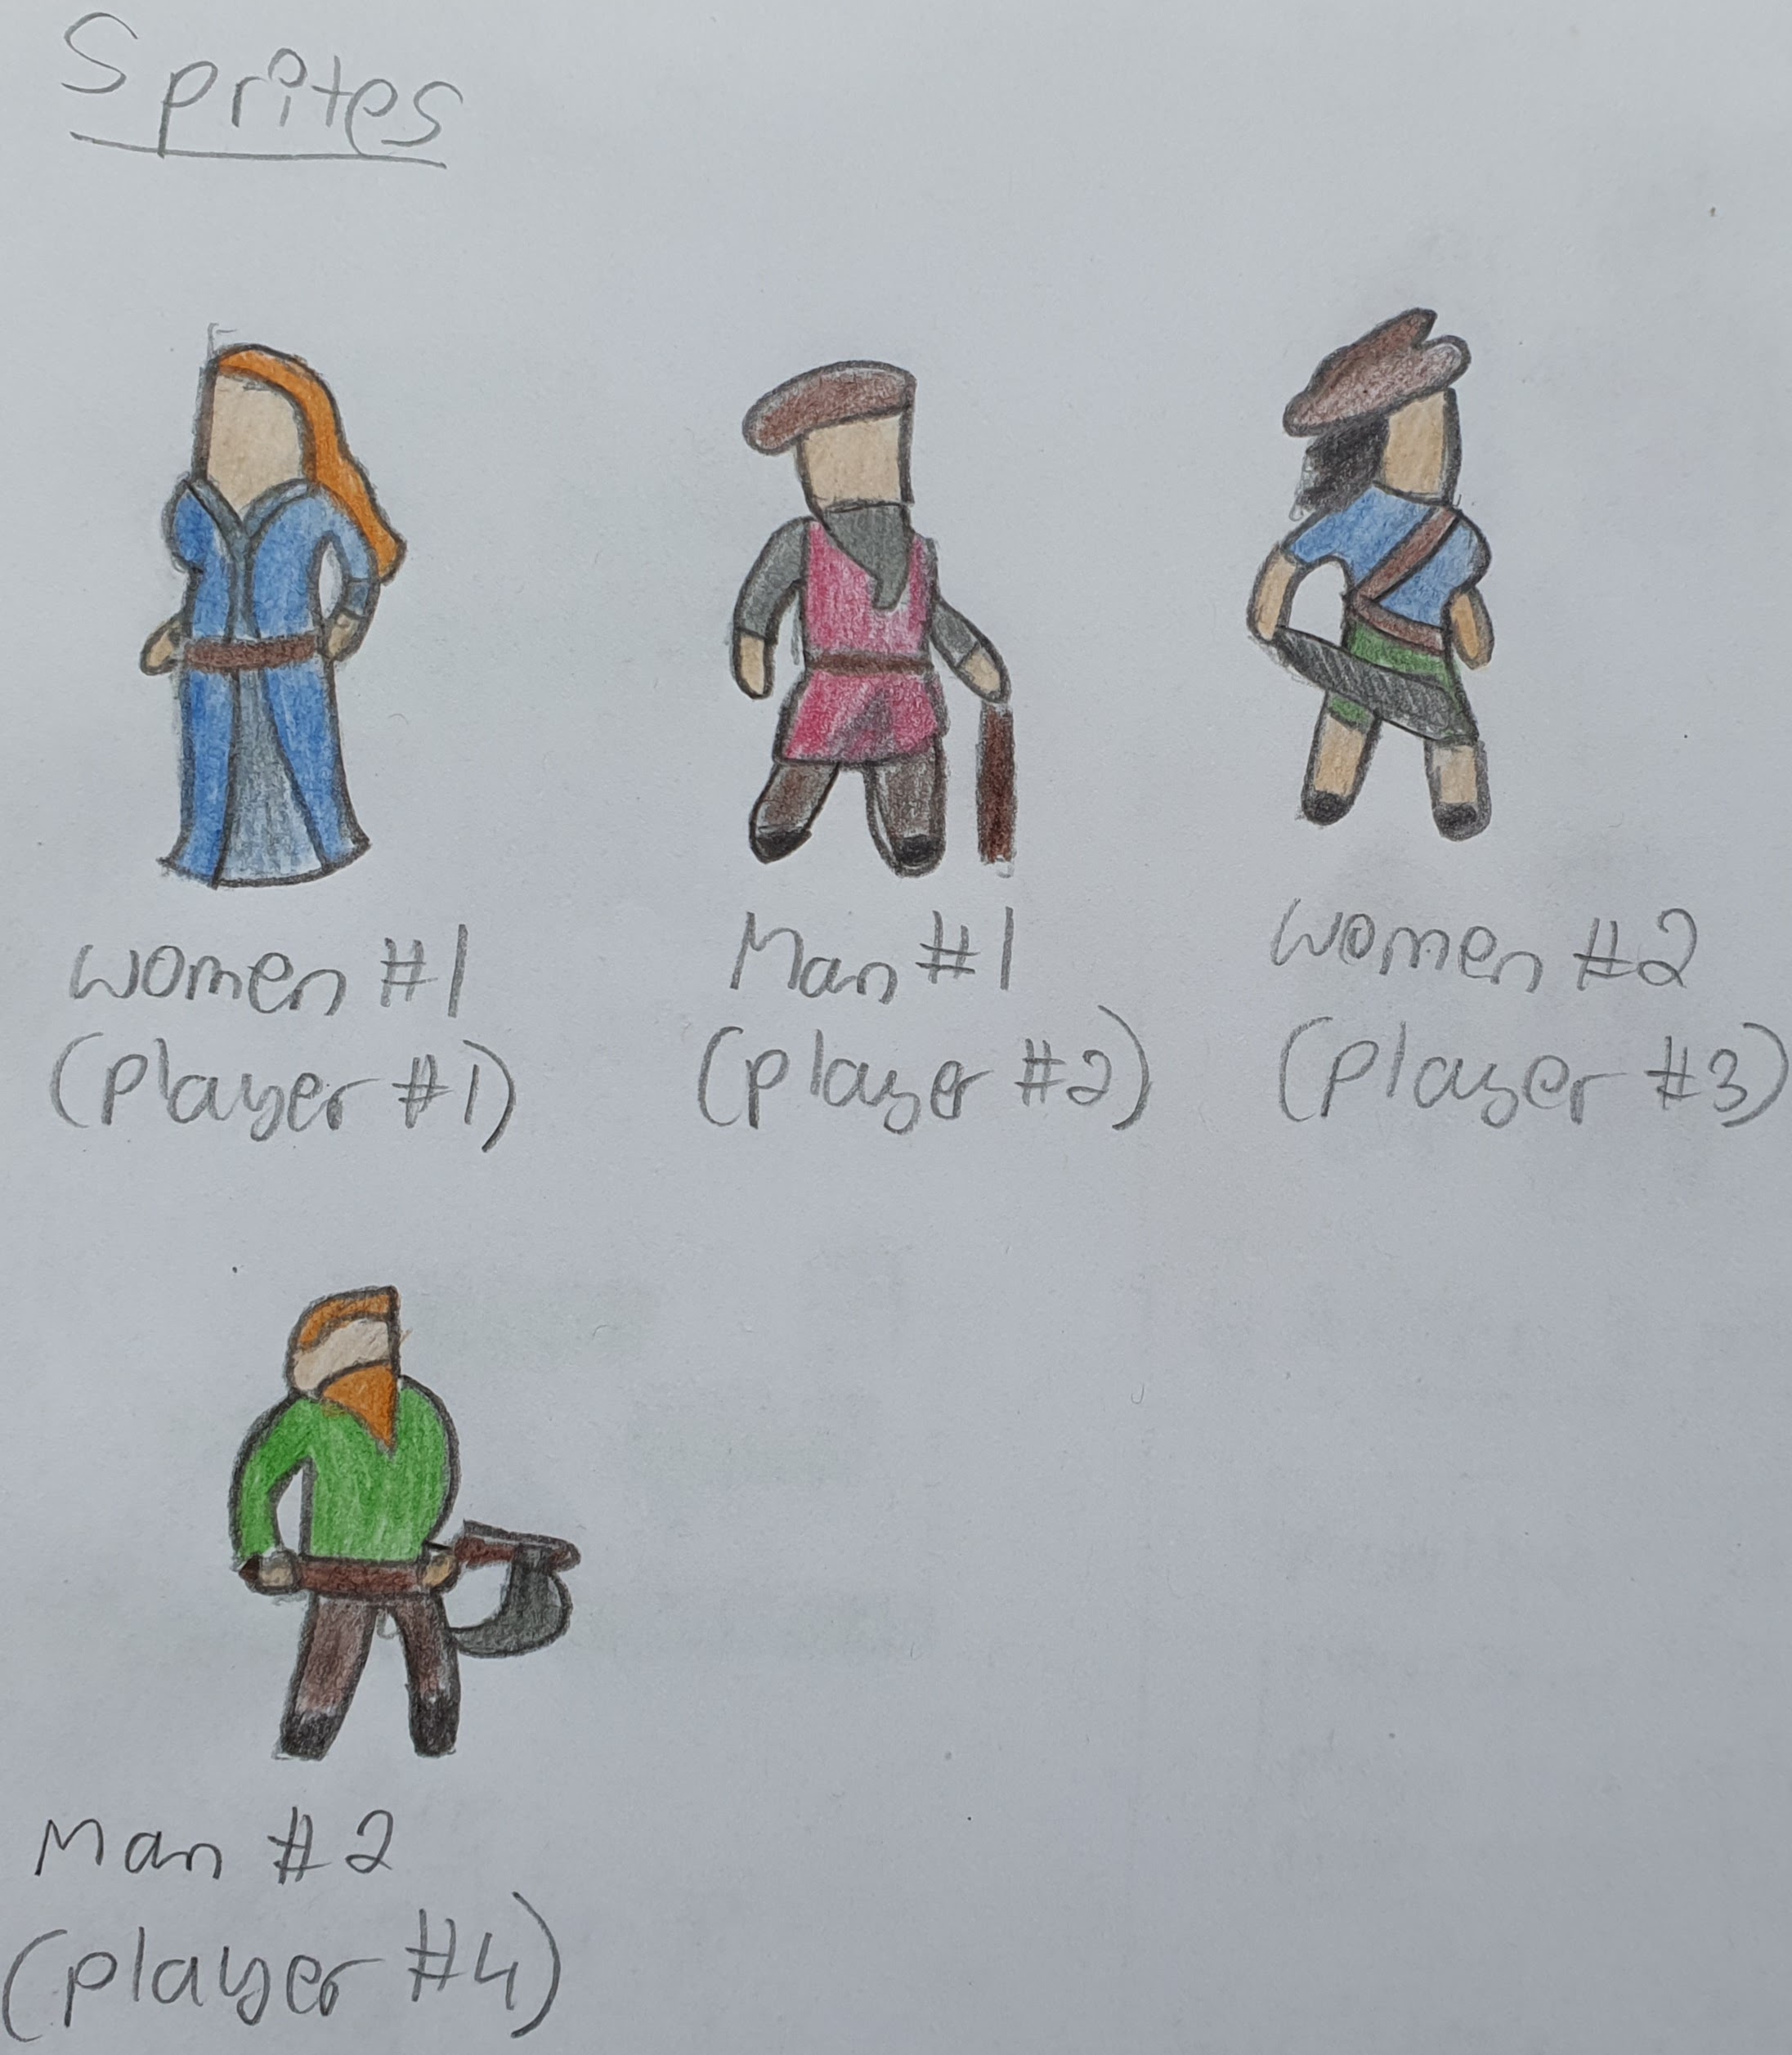 Sprites
women #1
(player #1)
Man #1
(player #2)
women #2
(player #3)
Man #2
(player #4)